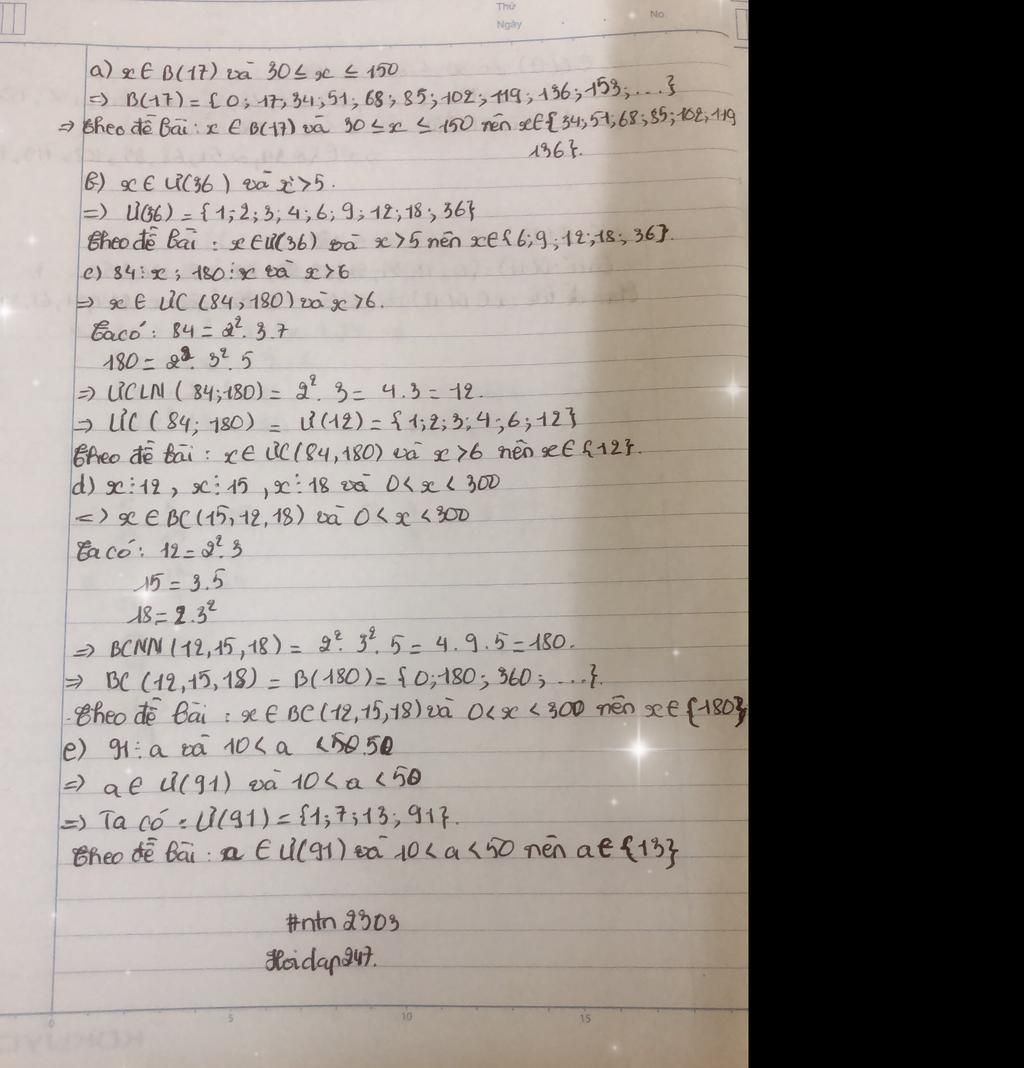 Thứ
Ngày
No
a) x ∈ B(17) và 30 ≤ x ≤ 150
=> B(17) = {0; 17; 34; 51; 68; 85; 102; 119; 136; 153; ...}
=> Theo đề bài: x ∈ B(17) và 30 ≤ x ≤ 150 nên x∈{34; 51; 68; 85; 102; 119
136}.
b) x ∈ Ư(36) và x > 5.
=> Ư(36) = {1; 2; 3; 4; 6; 9; 12; 18; 36}
Theo đề bài : x ∈ Ư(36) và x > 5 nên x∈{6; 9; 12; 18; 36}.
c) 84 ⋮ x ; 180 ⋮ x và x > 6
=> x ∈ ƯC (84; 180) và x > 6.
Ta có : 84 = 2². 3.7
180 = 2². 3². 5
=> ƯCLN (84;180) = 2². 3 = 4.3 = 12.
=> ƯC (84; 180) = Ư(12) = {1; 2; 3; 4; 6; 12}
Theo đề bài : x ∈ ƯC(84,180) và x > 6 nên x∈{12}.
d) x ⋮ 12 , x ⋮ 15 , x ⋮ 18 và 0 < x < 300
=> x ∈ BC (15, 12, 18) và 0 < x < 300
Ta có : 12 = 2². 3
15 = 3.5
18 = 2.3²
=> BCNN (12, 15, 18) = 2². 3². 5 = 4. 9. 5 = 180.
=> BC (12, 15, 18) = B(180) = {0; 180; 360; ...}.
Theo đề bài : x ∈ BC (12, 15, 18) và 0 < x < 300 nên x∈{180}
e) 91 ⋮ a và 10 < a < 50.50
=> a ∈ Ư(91) và 10 < a < 50
=> Ta có : Ư(91) = {1; 7; 13; 91}.
Theo đề bài : a ∈ Ư(91) và 10 < a < 50 nên a∈{13}
#ntn 2303
Hoidap247.
0 5 10 15